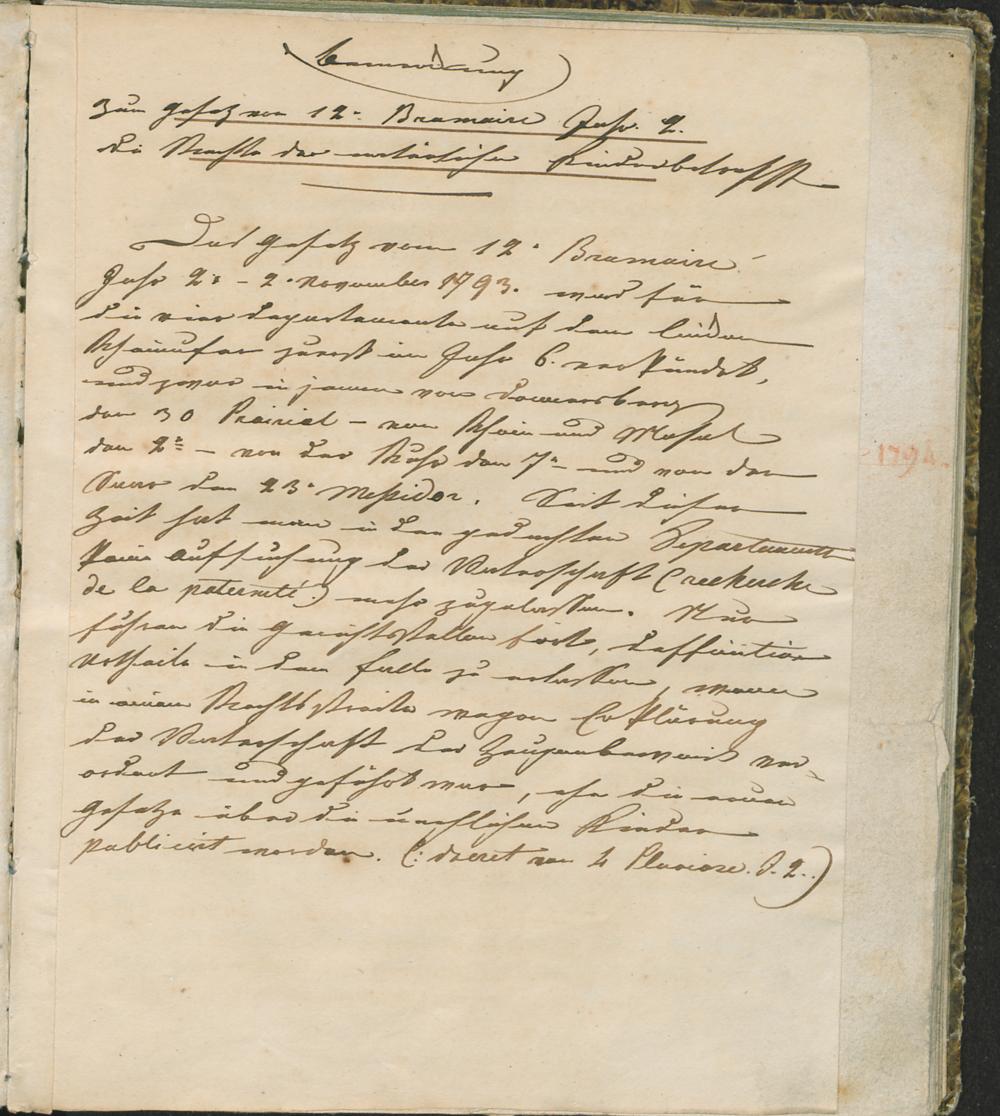 Bemerkung
zum Gesetz vom 12n Brumaire Jahr 2.
die Rechte der natürlichen Kinder betreffend
Das Gesetz vom 12n Brumaire
Jahr 2: – 2. November 1793. ward für
die vier Departemente auf dem linken
Rheinufer zuerst im Jahr 6. verkündet,
und zwar in jenem vom Donnersberg
den 30 Prairial – von Rhein und Mosel
den 2n – von der Ruhr den 7n und von der
Saar den 23n Messidor. Seit dieser
Zeit hat man in den gedachten Departements
keine Aufsuchung der Vaterschaft (recherche
de la paternité) mehr zugelassen. Nur
fuhren die Gerichtsstellen fort, deffinitiv
Urtheile in dem Falle zu erlassen, wenn
in einem Rechtsstreite wegen Erklärung
der Vaterschaft der Zeugenbeweis ver-
ordnet und geführt war, ehe die neuen
Gesetze über die unehlichen Kinder
publicirt worden. (: decret vom 4 Pluviose. J. 2.)
1794.